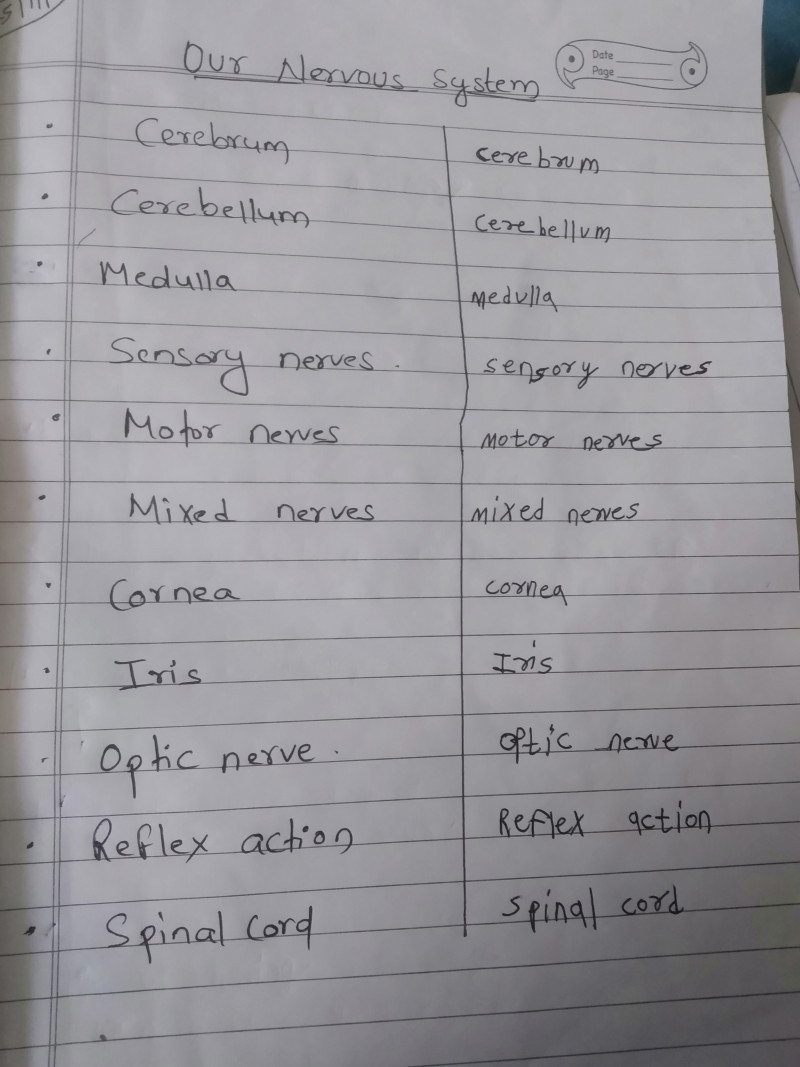 Our Nervous System
Date
Page
Cerebrum cerebrum
Cerebellum cerebellum
Medulla Medulla
Sensory nerves. sensory nerves
Motor nerves Motor nerves
Mixed nerves mixed nerves
Cornea cornea
Iris Iris
Optic nerve. optic nerve
Reflex action Reflex action
Spinal Cord spinal cord